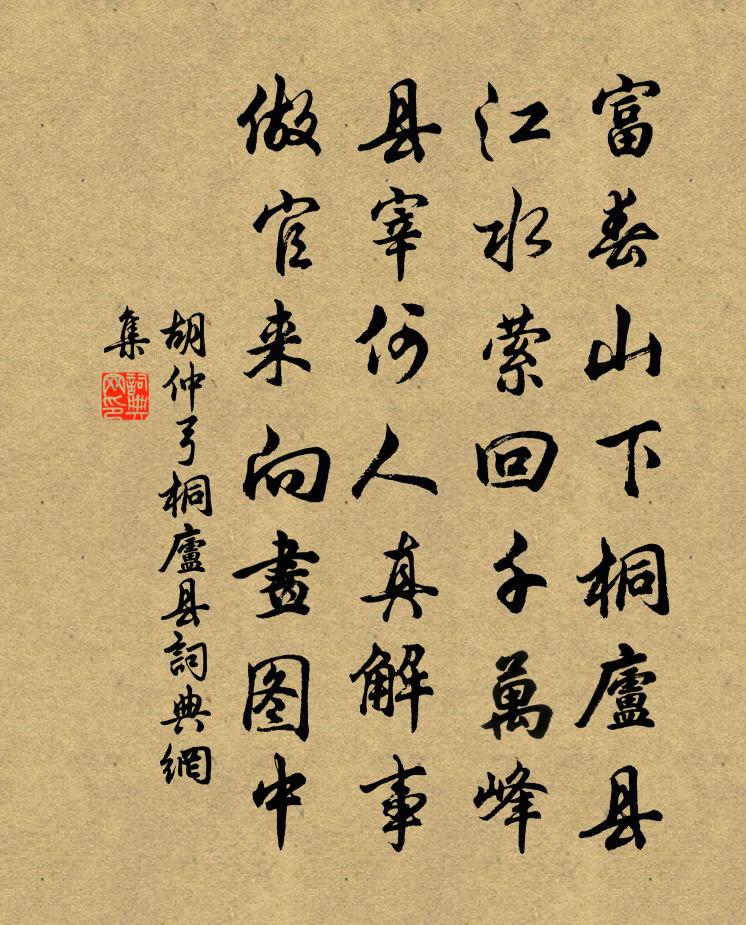 富春山下桐廬县
江水萦回千萬峰
县宰何人真解事
做官来向畫图中
胡仲弓桐廬县詞典網
集
詞典網印